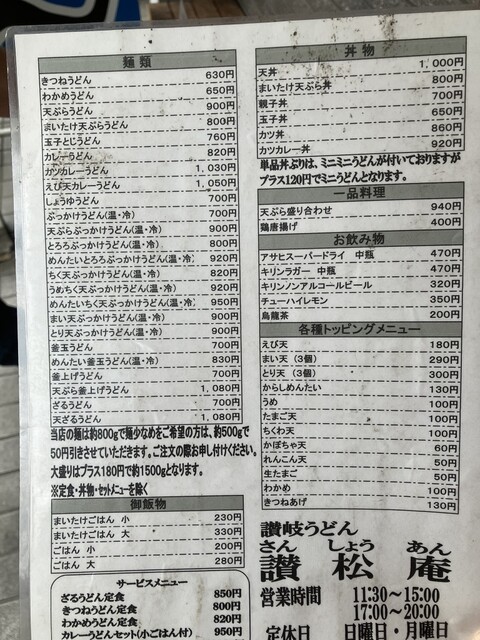 麺類
きつねうどん 630円
わかめうどん 650円
天ぷらうどん 900円
まいたけ天ぷらうどん 800円
玉子とじうどん 760円
カレーうどん 820円
カツカレーうどん 1,030円
えび天カレーうどん 1,050円
しょうゆうどん 700円
ぶっかけうどん(温・冷) 700円
天ぷらぶっかけうどん(温・冷) 900円
とろろぶっかけうどん(温・冷) 800円
めんたいとろろぶっかけうどん(温・冷) 920円
ちく天ぶっかけうどん(温・冷) 820円
うめちく天ぶっかけうどん(温・冷) 920円
めんたいちく天ぶっかけうどん(温・冷) 950円
まい天ぶっかけうどん(温・冷) 900円
とり天ぶっかけうどん(温・冷) 900円
釜玉うどん 700円
めんたい釜玉うどん(温・冷) 830円
釜上げうどん 700円
天ぷら釜上げうどん 1,080円
ざるうどん 700円
天ざるうどん 1,080円
当店の麺は約800gで麺少なめをご希望の方は、約500gで
50円引きさせていただきます。ご注文の際お申し付けください。
大盛りはプラス180円で約1500gとなります。
※定食・丼物・セットメニューを除く
御飯物
まいたけごはん 小 230円
まいたけごはん 大 330円
ごはん 小 200円
ごはん 大 280円
サービスメニュー
ざるうどん定食 850円
きつねうどん定食 800円
わかめうどん定食 820円
カレーうどんセット(小ごはん付) 950円
丼物
天丼 1,000円
まいたけ天ぷら丼 800円
親子丼 700円
玉子丼 650円
カツ丼 860円
カツカレー丼 920円
単品丼ぶりは、ミニミニうどんが付いておりますが
プラス120円でミニうどんとなります。
一品料理
天ぷら盛り合わせ 940円
鶏唐揚げ 400円
お飲み物
アサヒスーパードライ 中瓶 470円
キリンラガー 中瓶 470円
キリンノンアルコールビール 320円
チューハイレモン 350円
烏龍茶 200円
各種トッピングメニュー
えび天 180円
まい天 (3個) 290円
とり天 (3個) 300円
からしめんたい 130円
うめ 100円
たまご天 100円
ちくわ天 100円
かぼちゃ天 60円
れんこん天 50円
生たまご 50円
わかめ 100円
きつねあげ 130円
讃岐うどん
さん しょう あん
讃松庵
営業時間 11:30～15:00
17:00～20:00
定休日 日曜日・月曜日